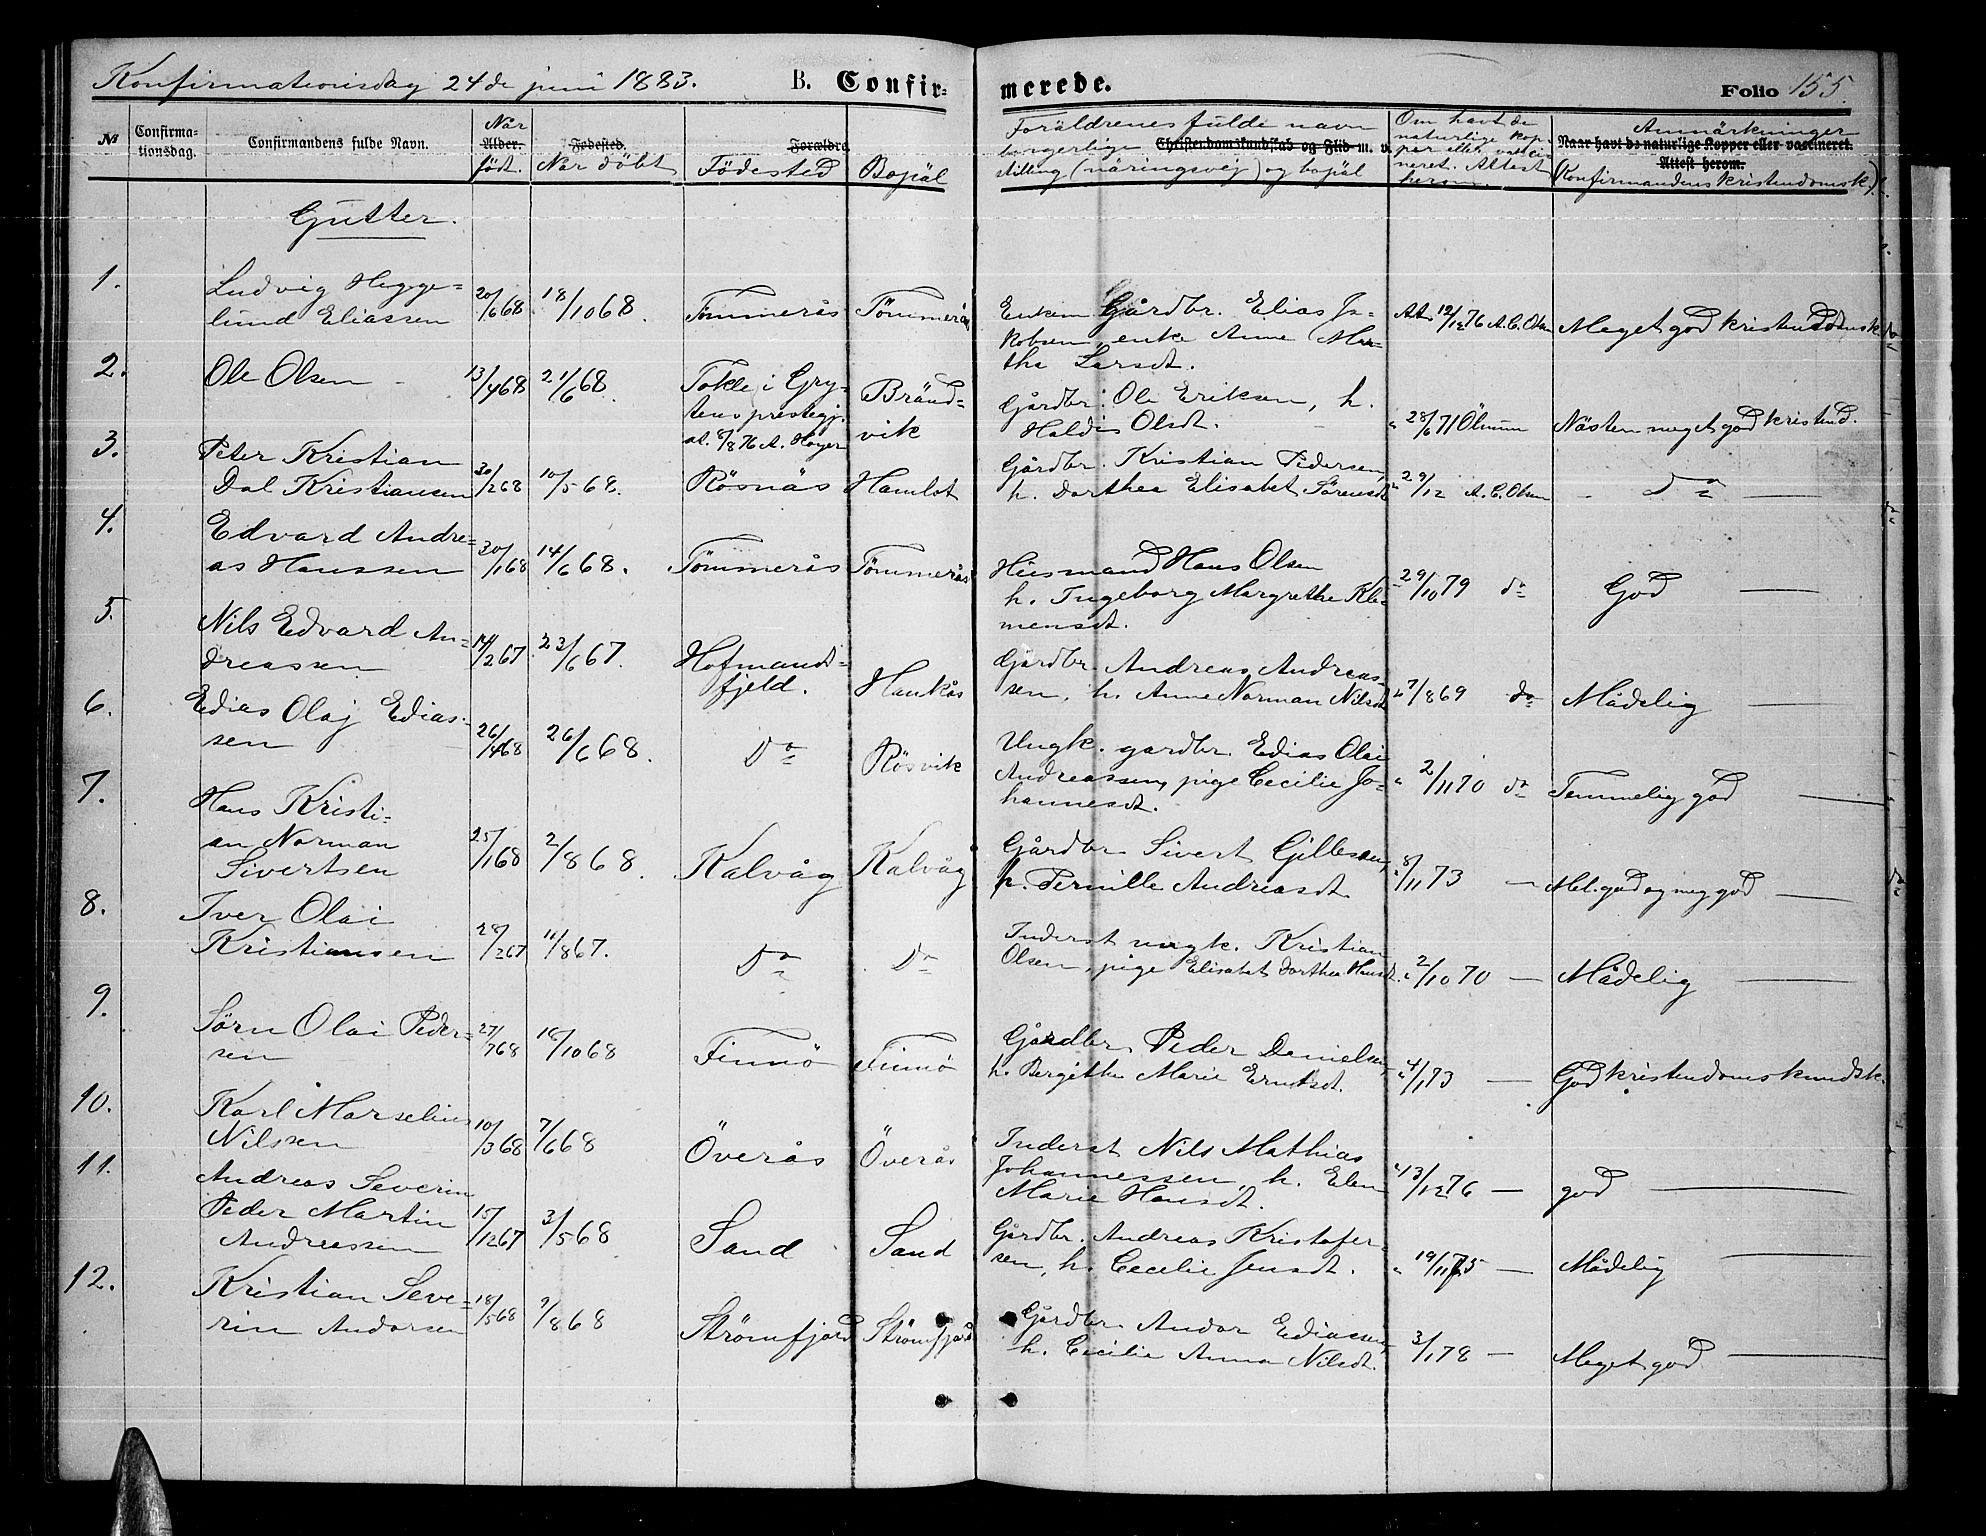 Konfirmationsdag 24de juni 1883. B. Confir-
merede. Folio 155
No Confirmationsdag. Confirmandens fulde Navn. Når Alder. født. Fødested. Når döbt Forældre Födested Bopäl
Foräldrenes fulde navn borgerlige Christendomskundskab og Flid m. v. stilling (näringsvej) og bopäl
Om havt de naturlige kopper eller vaccineret. Attest herom.
Anmärkninger Naar havt de naturlige Kopper eller vaccineret. Attest herom. (Konfirmandens kristendomsk.)
Gutter.
1. Ludvig Heggelund Eliassen 20/6 68 18/10 68. Tømmerås Tömmerås
Enkem. Gårdbr. Elias Jakobsen, enke Anne Marthe Larsdt. Att. 12/12 76 A.C. Olsen Meget god kristendomsk.
2. Ole Olsen 13/4 68 21/6 68. Tokle i Grytens prestegj. at. 8/8 76 A. Høyer Brändvik
Gårdbr. Ole Eriksen, h. Haldis Olsdt. " 28/6 71 Nästen meget god kristend.
3. Peter Kristian Dal Kristiansen 30/2 68 10/5 68. Rösnäs Hamlot
Gårdbr. Kristian Pedersen, h. Dorthea Elisabet Sørensdt. " 29/12 A.C. Olsen do
4. Edvard Andreas Hanssen 30/1 68 14/6 68. Tömmerås Tömmerås
Husmand Hans Olsen h. Ingeborg Margrethe Klemensdt. 29/10 79 do God
5. Nils Edvard Andreassen 14/2 67 23/6 67. Hofmandsfjeld. Haukås
Gårdbr. Andreas Andreassen, h. Anne Norman Nilsdt. 7/8 69 do Mådelig
6. Edias Olaj Ediassen 26/4 68 26/6 68. Do Rösvik
Ungk. gardbr. Edias Olai Andreassen, pige Cecilie Johannesdt. " 2/11 70 do Temmelig god
7. Hans Kristian Norman Sivertsen 25/1 68 2/8 68. Kalvåg Kalvåg
Gårdbr. Sivert Gillesen, h. Pernille Andreasdt. 8/11 73 — Mel. god og meg. god
8. Iver Olai Kristiansen 28/2 67 11/8 67. Do Do
Inderst ungk. Kristian Olsen, pige Elisabet Dorthea Hansdt. " 2/10 70 — Mådelig
9. Sörn Olai Pedersen 27/7 68 18/10 68 Finnö Finnö
Gårdbr. Peder Danielsen, h. Bergithe Marie Erntsdt. " 4/1 73 — God kristendomskundsk.
10. Karl Marselius Nilssen 10/3 68 7/6 68 Överås Överås
Inderst Nils Mathias Johannessen, h. Elen Marie Hansdt. " 13/12 76 — god
11. Andreas Severin Peder Martin Andreassen 15/12 67 3/5 68 Sand Sand
Gårdbr. Andreas Kristofersen, h. Cecilie Jensdt. " 19/11 75 — Mådelig
12. Kristian Severin Andorsen 18/5 68 9/8 68 Strömfjord Strömfjord
Gårdbr. Andor Ediassen, h. Cecilie Anna Nilsdt. 3/1 78 — Meget god